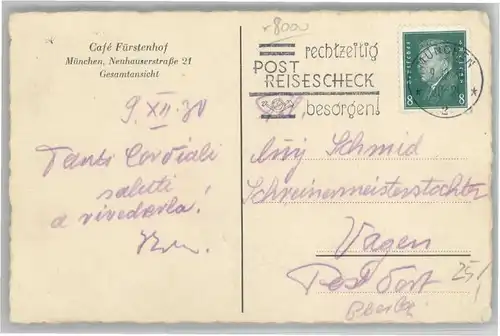 v8000
Café Fürstenhof
München, Neuhauserstraße 21
Gesamtansicht
rechtzeitig
POST
REISESCHECK
besorgen!
MÜNCHEN
2
8 8
9. XII. 30
Tanti Cordiali
saluti
a rivederla!
Schmid
Schreinermeisterstochter
Vagen
Post
25/